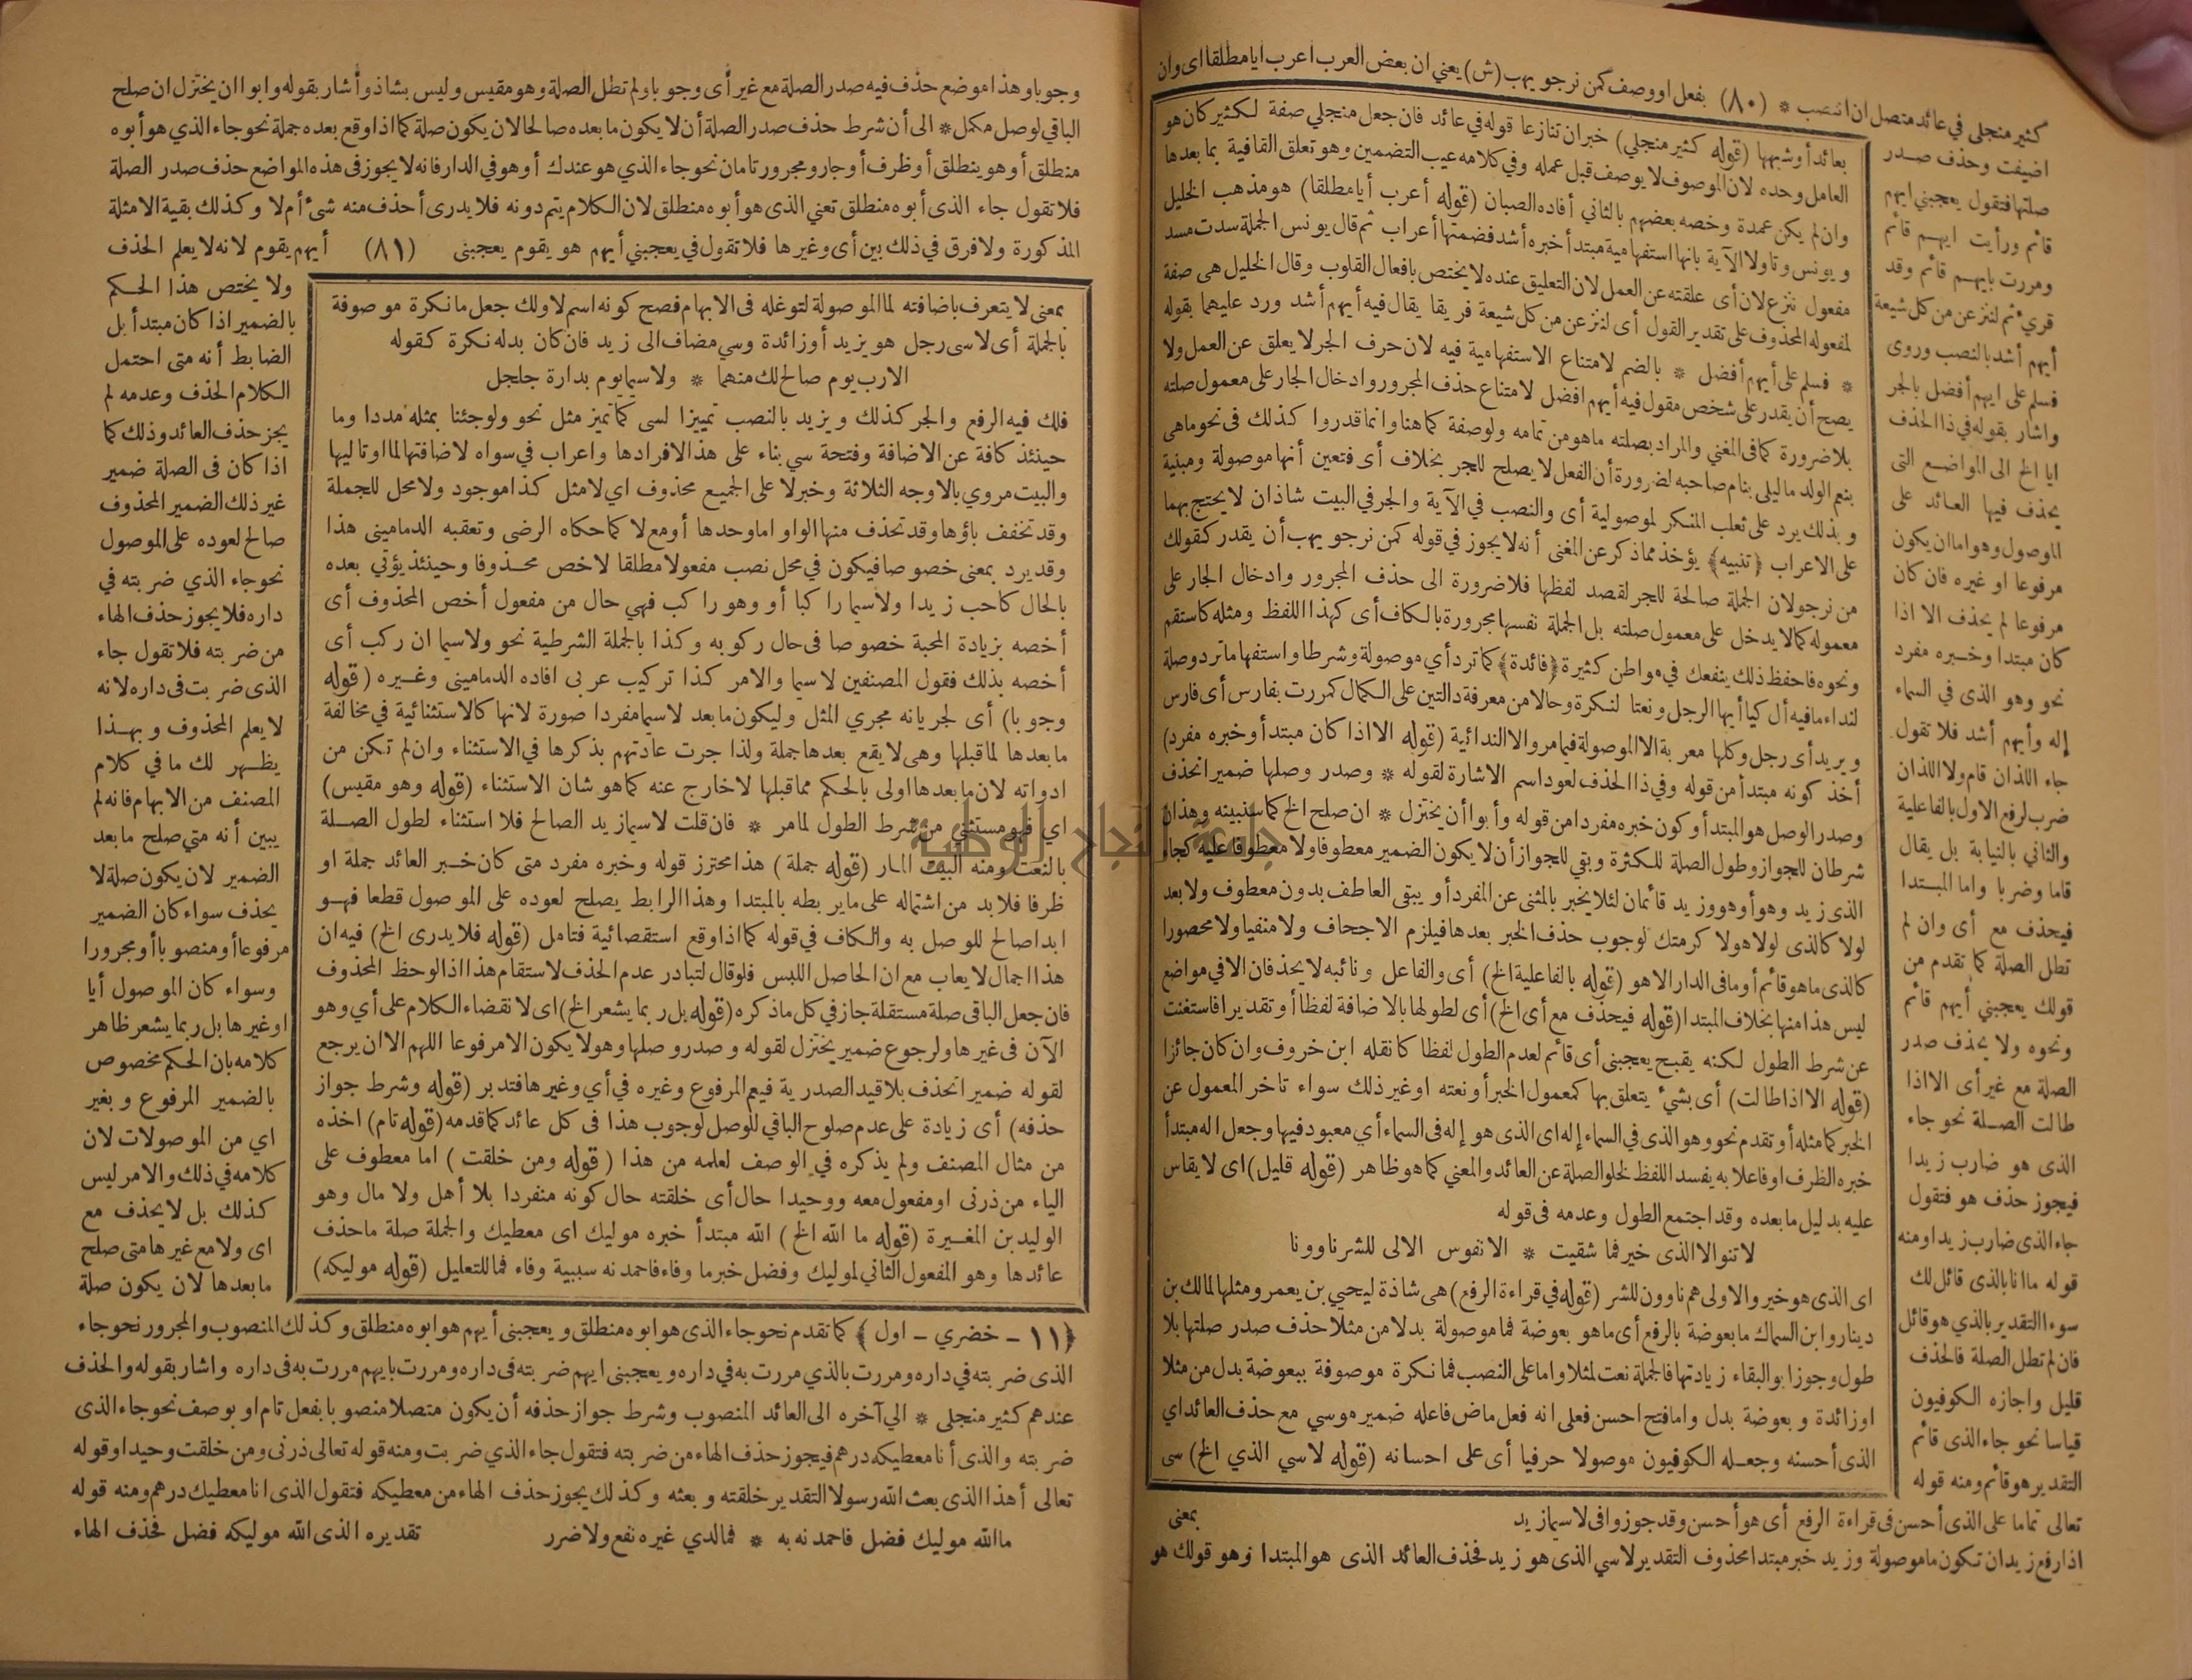 كثير منجلى في عائد متصل ان انتصب * (٨٠) بفعل او وصف كمن نرجو يهب (ش) يعني ان بعض العرب أعرب أيا مطلقا اى وان
اضيفت وحذف صدر
صلتها فتقول يعجبني ايهم
قائم ورأيت ايهم قائم
ومررت بايهم قائم وقد
قرئ ثم لننزعن من كل شيعة
أيهم أشد بالنصب وروى
فسلم على ايهم أفضل بالجر
واشار بقوله في ذا الحذف
ايا الخ الى المواضع التى
يحذف فيها العائد على
الموصول وهو اما ان يكون
مرفوعا او غيره فان كان
مرفوعا لم يحذف الا اذا
كان مبتدا وخبره مفرد
نحو وهو الذى في السماء
إله وأيهم أشد فلا تقول
جاء اللذان قام ولا اللذان
ضرب لرفع الاول بالفاعلية
والثاني بالنيابة بل يقال
قاما وضربا واما المبتدا
فيحذف مع أى وان لم
تطل الصلة كما تقدم من
قولك يعجبني أيهم قائم
ونحوه ولا يحذف صدر
الصلة مع غير أى الا اذا
طالت الصلة نحو جاء
الذى هو ضارب زيدا
فيجوز حذف هو فتقول
جاء الذى ضارب زيدا ومنه
قوله ما انا بالذى قائل لك
سوءا التقدير بالذي هو قائل
فان لم تطل الصلة فالحذف
قليل واجازه الكوفيون
قياسا نحو جاء الذى قائم
التقدير هو قائم ومنه قوله
تعالى تماما على الذى أحسن فى قراءة الرفع أى هو أحسن وقد جوزوا فى لاسيما زيد
اذا رفع زيد ان تكون ما موصولة وزيد خبر مبتدا محذوف التقدير لاسي الذى هو زيد فحذف العائد الذى هو المبتدا وهو قولك هو
بعائد أو شبهها (قوله كثير منجلي) خبران تنازعا قوله في عائد فان جعل منجلي صفة لكثير كان هو
العامل وحده لان الموصوف لا يوصف قبل عمله وفي كلامه عيب التضمين وهو تعلق القافية بما بعدها
وان لم يكن عمدة وخصه بعضهم بالثاني أفاده الصبان (قوله أعرب أيا مطلقا) هو مذهب الخليل
ويونس وتاولا الآية بانها استفهامية مبتدأ خبره أشد فضمتها أعراب ثم قال يونس الجملة سدت مسد
مفعول ننزع لان أى علقته عن العمل لان التعليق عنده لا يختص بافعال القلوب وقال الخليل هى صفة
لمفعوله المحذوف على تقدير القول أى لننزعن من كل شيعة فريقا يقال فيه أيهم أشد ورد عليهما بقوله
* فسلم على أيهم أفضل * بالضم لامتناع الاستفهامية فيه لان حرف الجر لا يعلق عن العمل ولا
يصح أن يقدر على شخص مقول فيه أيهم افضل لامتناع حذف المجرور وادخال الجار على معمول صلته
بلا ضرورة كما فى المغني والمراد بصلته ما هو من تمامه ولو صفة كما هنا وانما قدروا كذلك فى نحو ما هى
بنعم الولد ما ليلى بنام صاحبه لضرورة أن الفعل لا يصلح للجر بخلاف أى فتعين أنها موصولة ومبنية
وبذلك يرد على ثعلب المنكر لموصولية أى والنصب في الآية والجر في البيت شاذان لا يحتج بهما
على الاعراب {تنبيه} يؤخذ مما ذكر عن المغنى أنه لا يجوز في قوله كمن نرجو يهب أن يقدر كقولك
من نرجو لان الجملة صالحة للجر لقصد لفظها فلا ضرورة الى حذف المجرور وادخال الجار على
معموله كما لا يدخل على معمول صلته بل الجملة نفسها مجرورة بالكاف أى كهذا اللفظ ومثله كاستقم
ونحوه فاحفظ ذلك ينفعك في مواطن كثيرة {فائدة} كما ترد أي موصولة وشرطا واستفهاما ترد وصلة
لنداء ما فيه أل كيا أيها الرجل ونعتا لنكرة وحالا من معرفة دالتين على الكمال كمررت بفارس أى فارس
وبزيد أى رجل وكلها معربة الا الموصولة فيما مر والا الندائية (قوله الا اذا كان مبتدأ وخبره مفرد)
أخذ كونه مبتدأ من قوله وفي ذا الحذف لعود اسم الاشارة لقوله * وصدر وصلها ضمير انحذف
وصدر الوصل هو المبتدأ وكون خبره مفردا من قوله وأبوا أن يختزل * ان صلح الخ كما سنبينه وهذان
شرطان للجواز وطول الصلة للكثرة وبقي للجواز أن لا يكون الضمير معطوفا ولا معطوفا عليه كجاء
الذى زيد وهو أو هو وزيد قائمان لئلا يخبر بالمثنى عن المفرد أو يبقى العاطف بدون معطوف ولا بعد
لولا كالذى لولا هو لا كرمتك لوجوب حذف الخبر بعدها فيلزم الاجحاف ولا منفيا ولا محصورا
كالذى ما هو قائم أو ما فى الدار الا هو (قوله بالفاعلية الخ) أى والفاعل ونائبه لا يحذفان الا في مواضع
ليس هذا منها بخلاف المبتدا (قوله فيحذف مع أى الخ) أى لطولها بالاضافة لفظا أو تقديرا فاستغنت
عن شرط الطول لكنه يقبح يعجبنى أى قائم لعدم الطول لفظا كما نقله ابن خروف وان كان جائزا
(قوله الا اذا طالت) أى بشئ يتعلق بها كمعمول الخبر أو نعته او غير ذلك سواء تاخر المعمول عن
الخبر كما مثله أو تقدم نحو وهو الذى في السماء إله اى الذى هو إله فى السماء أي معبود فيها وجعل اله مبتدأ
خبره الظرف او فاعلا به يفسد اللفظ لخلو الصلة عن العائد والمعني كما هو ظاهر (قوله قليل) اى لا يقاس
عليه بدليل ما بعده وقد اجتمع الطول وعدمه فى قوله
لا تنو الا الذى خير فما شقيت * الا نفوس الالى للشر ناوونا
اى الذى هو خير والاولى هم ناوون للشر (قوله في قراءة الرفع) هى شاذة ليحيي بن يعمر ومثلها لمالك بن
دينار وابن السماك ما بعوضة بالرفع أى ما هو بعوضة فما موصولة بدلا من مثلا حذف صدر صلتها بلا
طول وجوز ابو البقاء زيادتها فالجملة نعت لمثلا واما على النصب فما نكرة موصوفة ببعوضة بدل من مثلا
او زائدة وبعوضة بدل واما فتح احسن فعلى انه فعل ماض فاعله ضمير موسي مع حذف العائد اي
الذى أحسنه وجعله الكوفيون موصولا حرفيا أى على احسانه (قوله لاسي الذي الخ) سى
بمعنى
وجوبا وهذا موضع حذف فيه صدر الصلة مع غير أى وجوبا ولم تطل الصلة وهو مقيس وليس بشاذ وأشار بقوله وابوا ان يختزل ان صلح
الباقي لوصل مكمل * الى أن شرط حذف صدر الصلة أن لا يكون ما بعده صالحا لان يكون صلة كما اذا وقع بعده جملة نحو جاء الذي هو أبوه
منطلق أو هو ينطلق أو ظرف أو جار ومجرور تامان نحو جاء الذي هو عندك أو هو في الدار فانه لا يجوز فى هذه المواضع حذف صدر الصلة
فلا تقول جاء الذى أبوه منطلق تعني الذى هو أبوه منطلق لان الكلام يتم دونه فلا يدرى أحذف منه شئ أم لا وكذلك بقية الامثلة
المذكورة ولا فرق في ذلك بين أى وغيرها فلا تقول في يعجبني أيهم هو يقوم يعجبنى (٨١) أيهم يقوم لانه لا يعلم الحذف
بمعنى لا يتعرف باضافته لما الموصولة لتوغله فى الابهام فصح كونه اسم لا ولك جعل ما نكرة موصوفة
بالجملة أى لاسى رجل هو يزيد أو زائدة وسي مضاف الى زيد فان كان بدله نكرة كقوله
الا رب يوم صالح لك منهما * ولا سيما يوم بدارة جلجل
فلك فيه الرفع والجر كذلك ويزيد بالنصب تمييزا لسى كما تميز مثل نحو ولو جئنا بمثله مددا وما
حينئذ كافة عن الاضافة وفتحة سي بناء على هذا لافرادها واعراب في سواه لاضافتها لما او تاليها
والبيت مروي بالاوجه الثلاثة وخبر لا على الجميع محذوف اي لا مثل كذا موجود ولا محل للجملة
وقد تخفف ياؤها وقد تحذف منها الواو اما وحدها أو مع لا كما حكاه الرضى وتعقبه الدمامينى هذا
وقد يرد بمعنى خصوصا فيكون في محل نصب مفعولا مطلقا لاخص محذوفا وحينئذ يؤتي بعده
بالحال كاحب زيدا ولاسيما راكبا أو وهو راكب فهي حال من مفعول أخص المحذوف أى
أخصه بزيادة المحبة خصوصا فى حال ركوبه وكذا بالجملة الشرطية نحو ولاسيما ان ركب أى
أخصه بذلك فقول المصنفين لاسيما والامر كذا تركيب عربى افاده الدمامينى وغيره (قوله
وجوبا) أى لجريانه مجري المثل وليكون ما بعد لاسيما مفردا صورة لانها كالاستثنائية في مخالفة
ما بعدها لما قبلها وهى لا يقع بعدها جملة ولذا جرت عادتهم بذكرها في الاستثناء وان لم تكن من
ادواته لان ما بعدها اولى بالحكم مما قبلها لا خارج عنه كما هو شان الاستثناء (قوله وهو مقيس)
اي فهو مستثنى من شرط الطول لما مر * فان قلت لاسيما زيد الصالح فلا استثناء لطول الصلة
بالنعت ومنه البيت المار (قوله جملة) هذا محترز قوله وخبره مفرد متى كان خبر العائد جملة او
ظرفا فلا بد من اشتماله على ما يربطه بالمبتدا وهذا الرابط يصلح لعوده على الموصول قطعا فهو
ابدا صالح للوصل به والكاف في قوله كما اذا وقع استقصائية فتامل (قوله فلا يدرى الخ) فيه ان
هذا اجمال لا يعاب مع ان الحاصل اللبس فلو قال لتبادر عدم الحذف لاستقام هذا اذا لوحظ المحذوف
فان جعل الباقى صلة مستقلة جاز في كل ما ذكره (قوله بل ربما يشعر الخ) اى لانقضاء الكلام على أي وهو
الآن فى غيرها ولرجوع ضمير يختزل لقوله وصدر وصلها وهو لا يكون الا مرفوعا اللهم الا ان يرجع
لقوله ضمير انحذف بلا قيد الصدرية فيعم المرفوع وغيره في أي وغيرها فتدبر (قوله وشرط جواز
حذفه) أى زيادة على عدم صلوح الباقي للوصل لوجوب هذا فى كل عائد كما قدمه (قوله تام) اخذه
من مثال المصنف ولم يذكره في الوصف لعلمه من هذا (قوله ومن خلقت) اما معطوف على
الياء من ذرنى او مفعول معه ووحيدا حال أى خلقته حال كونه منفردا بلا أهل ولا مال وهو
الوليد بن المغيرة (قوله ما الله الخ) الله مبتدأ خبره موليك اى معطيك والجملة صلة ما حذف
عائدها وهو المفعول الثاني لموليك وفضل خبر ما وفاء فاحمدنه سببية وفاء فما للتعليل (قوله موليكه)
ولا يختص هذا الحكم
بالضمير اذا كان مبتدأ بل
الضابط أنه متى احتمل
الكلام الحذف وعدمه لم
يجز حذف العائد وذلك كما
اذا كان فى الصلة ضمير
غير ذلك الضمير المحذوف
صالح لعوده على الموصول
نحو جاء الذي ضربته في
داره فلا يجوز حذف الهاء
من ضربته فلا تقول جاء
الذى ضربت فى داره لانه
لا يعلم المحذوف وبهذا
يظهر لك ما في كلام
المصنف من الابهام فانه لم
يبين أنه متي صلح ما بعد
الضمير لان يكون صلة لا
يحذف سواء كان الضمير
مرفوعا أو منصوبا أو مجرورا
وسواء كان الموصول أيا
او غيرها بل ربما يشعر ظاهر
كلامه بان الحكم مخصوص
بالضمير المرفوع وبغير
اي من الموصولات لان
كلامه في ذلك والامر ليس
كذلك بل لا يحذف مع
اى ولا مع غيرها متى صلح
ما بعدها لان يكون صلة
{١١ - خضري - اول} كما تقدم نحو جاء الذى هو ابوه منطلق ويعجبنى أيهم هو ابوه منطلق وكذلك المنصوب والمجرور نحو جاء
الذى ضربته في داره ومررت بالذي مررت به في داره ويعجبنى ايهم ضربته فى داره ومررت بايهم مررت به فى داره واشار بقوله والحذف
عندهم كثير منجلى * الي آخره الى العائد المنصوب وشرط جواز حذفه أن يكون متصلا منصوبا بفعل تام او بوصف نحو جاء الذى
ضربته والذى أنا معطيكه درهم فيجوز حذف الهاء من ضربته فتقول جاء الذي ضربت ومنه قوله تعالى ذرنى ومن خلقت وحيدا وقوله
تعالى أهذا الذى بعث الله رسولا التقدير خلقته وبعثه وكذلك يجوز حذف الهاء من معطيكه فتقول الذى انا معطيك درهم ومنه قوله
ما الله موليك فضل فاحمدنه به * فما لدي غيره نفع ولا ضرر تقديره الذى الله موليكه فضل فحذف الهاء
جامعة النجاح الوطنية